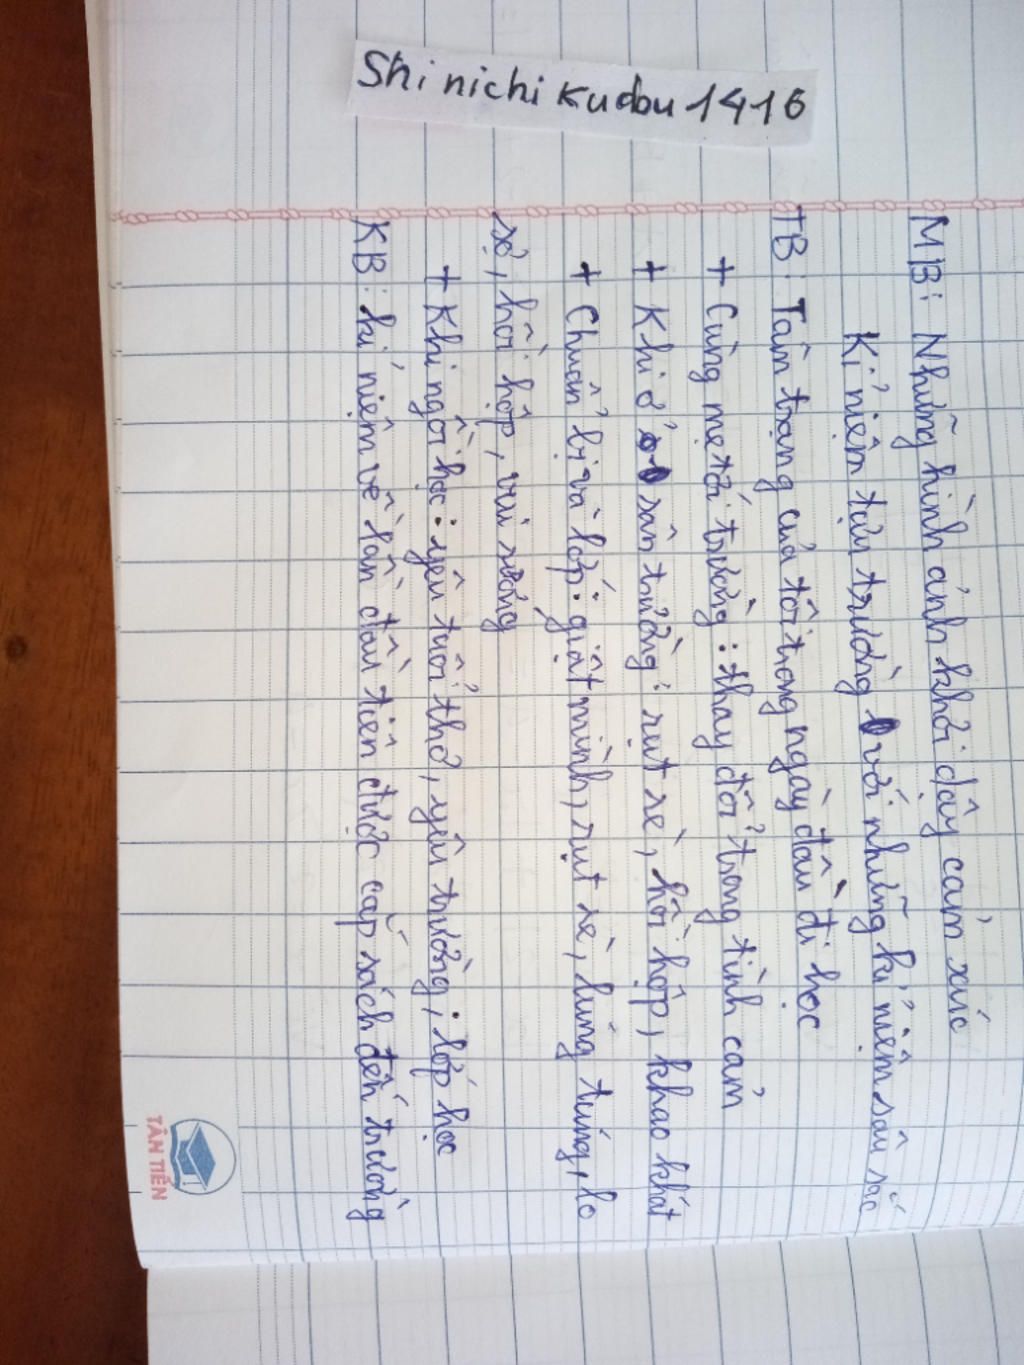 Shinichikudou1416
MB: Những hình ảnh khơi dậy cảm xúc
Kỉ niệm tựu trường với những kỉ niệm sâu sắc
TB: Tâm trạng của tôi trong ngày đầu đi học
+ Cùng mẹ tới trường: thay đổi trong tình cảm
+ Khi ở sân trường: rụt rè, hồi hộp, khao khát
+ Chuẩn bị và lớp: giật mình, rụt rè, lúng túng, lo
sợ, hồi hộp, vui sướng
+ Khi ngồi học: yêu tuổi thơ, yêu trường, lớp học
KB: kỉ niệm về lần đầu tiên được cắp sách đến trường
TÂN TIẾN